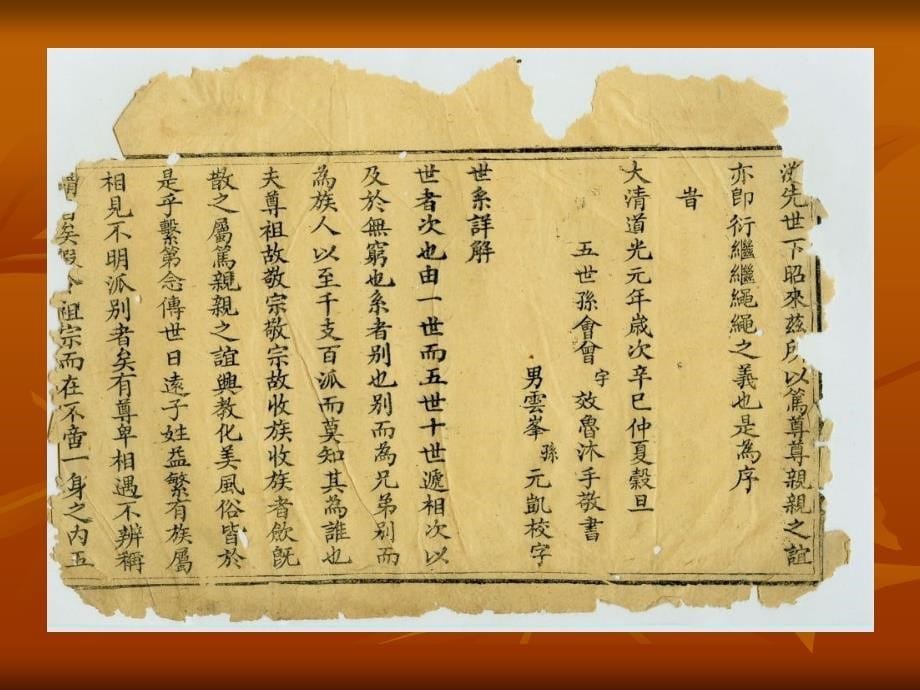 先世下昭來茲所以篤尊尊親親之誼
亦即衍繼繼繩繩之義也是為序
旹
大清道光元年歲次辛巳仲夏穀旦
五世孫會曾字效魯沐手敬書
男雲峯孫元凱校字
世系詳解
世者次也由一世而五世十世遞相次以
及於無窮也系者别也别而為兄弟别而
為族人以至千支百派而莫知其為誰也
夫尊祖故敬宗敬宗故收族收族者飲旣
散之屬篤親親之誼興教化美風俗皆於
是乎繫第念傳世日遠子姓益繁有族屬
相見不明派别者矣有尊卑相遇不辨稱
矣祖宗而在不啻一身之内五